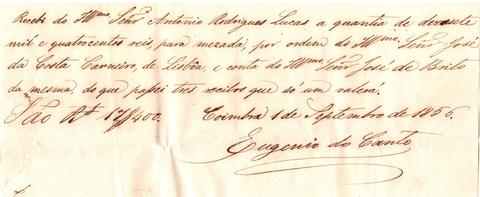 Recebi do Illmo Senr Antonio Rodrigues Lucas a quantia de dezasete
mil e quatrocentos reis, para mezada, por ordem do Illmo Senr José
da Costa Carneiro, de Lisbôa, e conta do Illmo Senr José de Brito
da mesma, do que passei tres recibos que só um valerá.
São Rs 17$400. Coimbra 1 de Septembro de 1856.
Eugenio do Canto